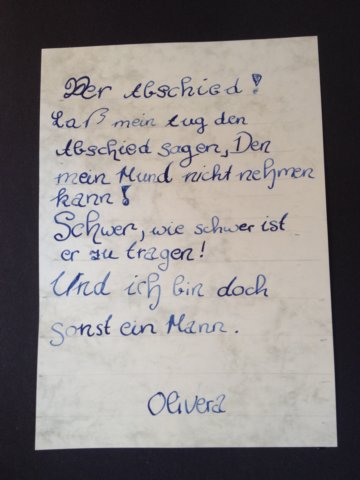 Der Abschied!
Laß mein Aug den
Abschied sagen, Den
mein Mund nicht nehmen
kann!
Schwer, wie schwer ist
er zu tragen!
Und ich bin doch
sonst ein Mann.
Olivera